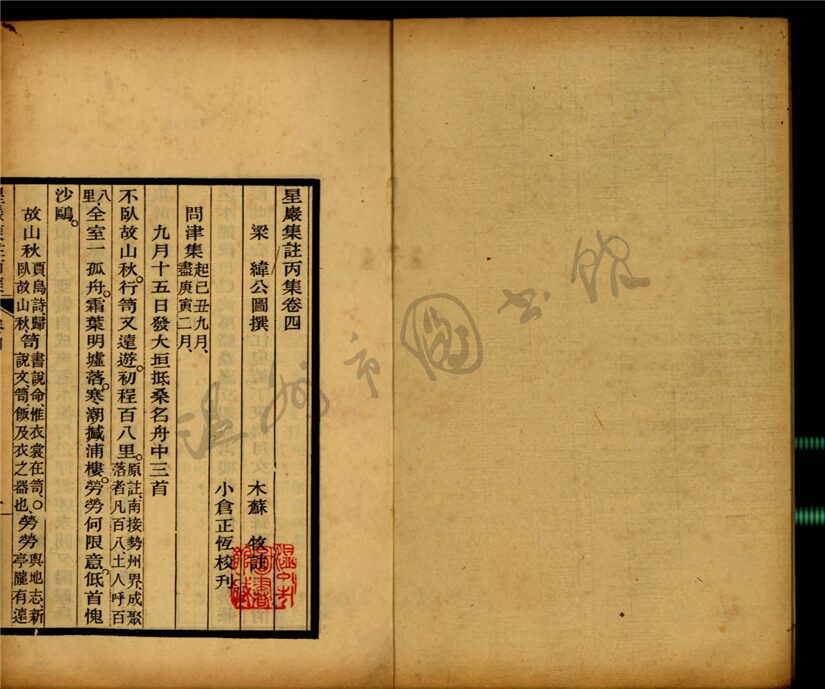 星巖集註丙集卷四
梁 緯公圖撰 木蘇 牧註
小倉正恆校刊
問津集 起己丑九月、
盡庚寅二月、
九月十五日發大垣抵桑名舟中三首
不臥故山秋。行笥又遠遊。初程百八里。 原註、南接勢州界、成聚
落者凡百八、土人呼百
八
里、 全室一孤舟。霜葉明墟落。寒潮撼浦樓。勞勞何限意。低首愧
沙鷗。
故山秋 賈島詩、歸
臥故山秋、 笥 書說命、惟衣裳在笥。○
說文、笥、飯及衣之器也、 勞勞 輿地志、新
亭隴有遠
温州市图书馆